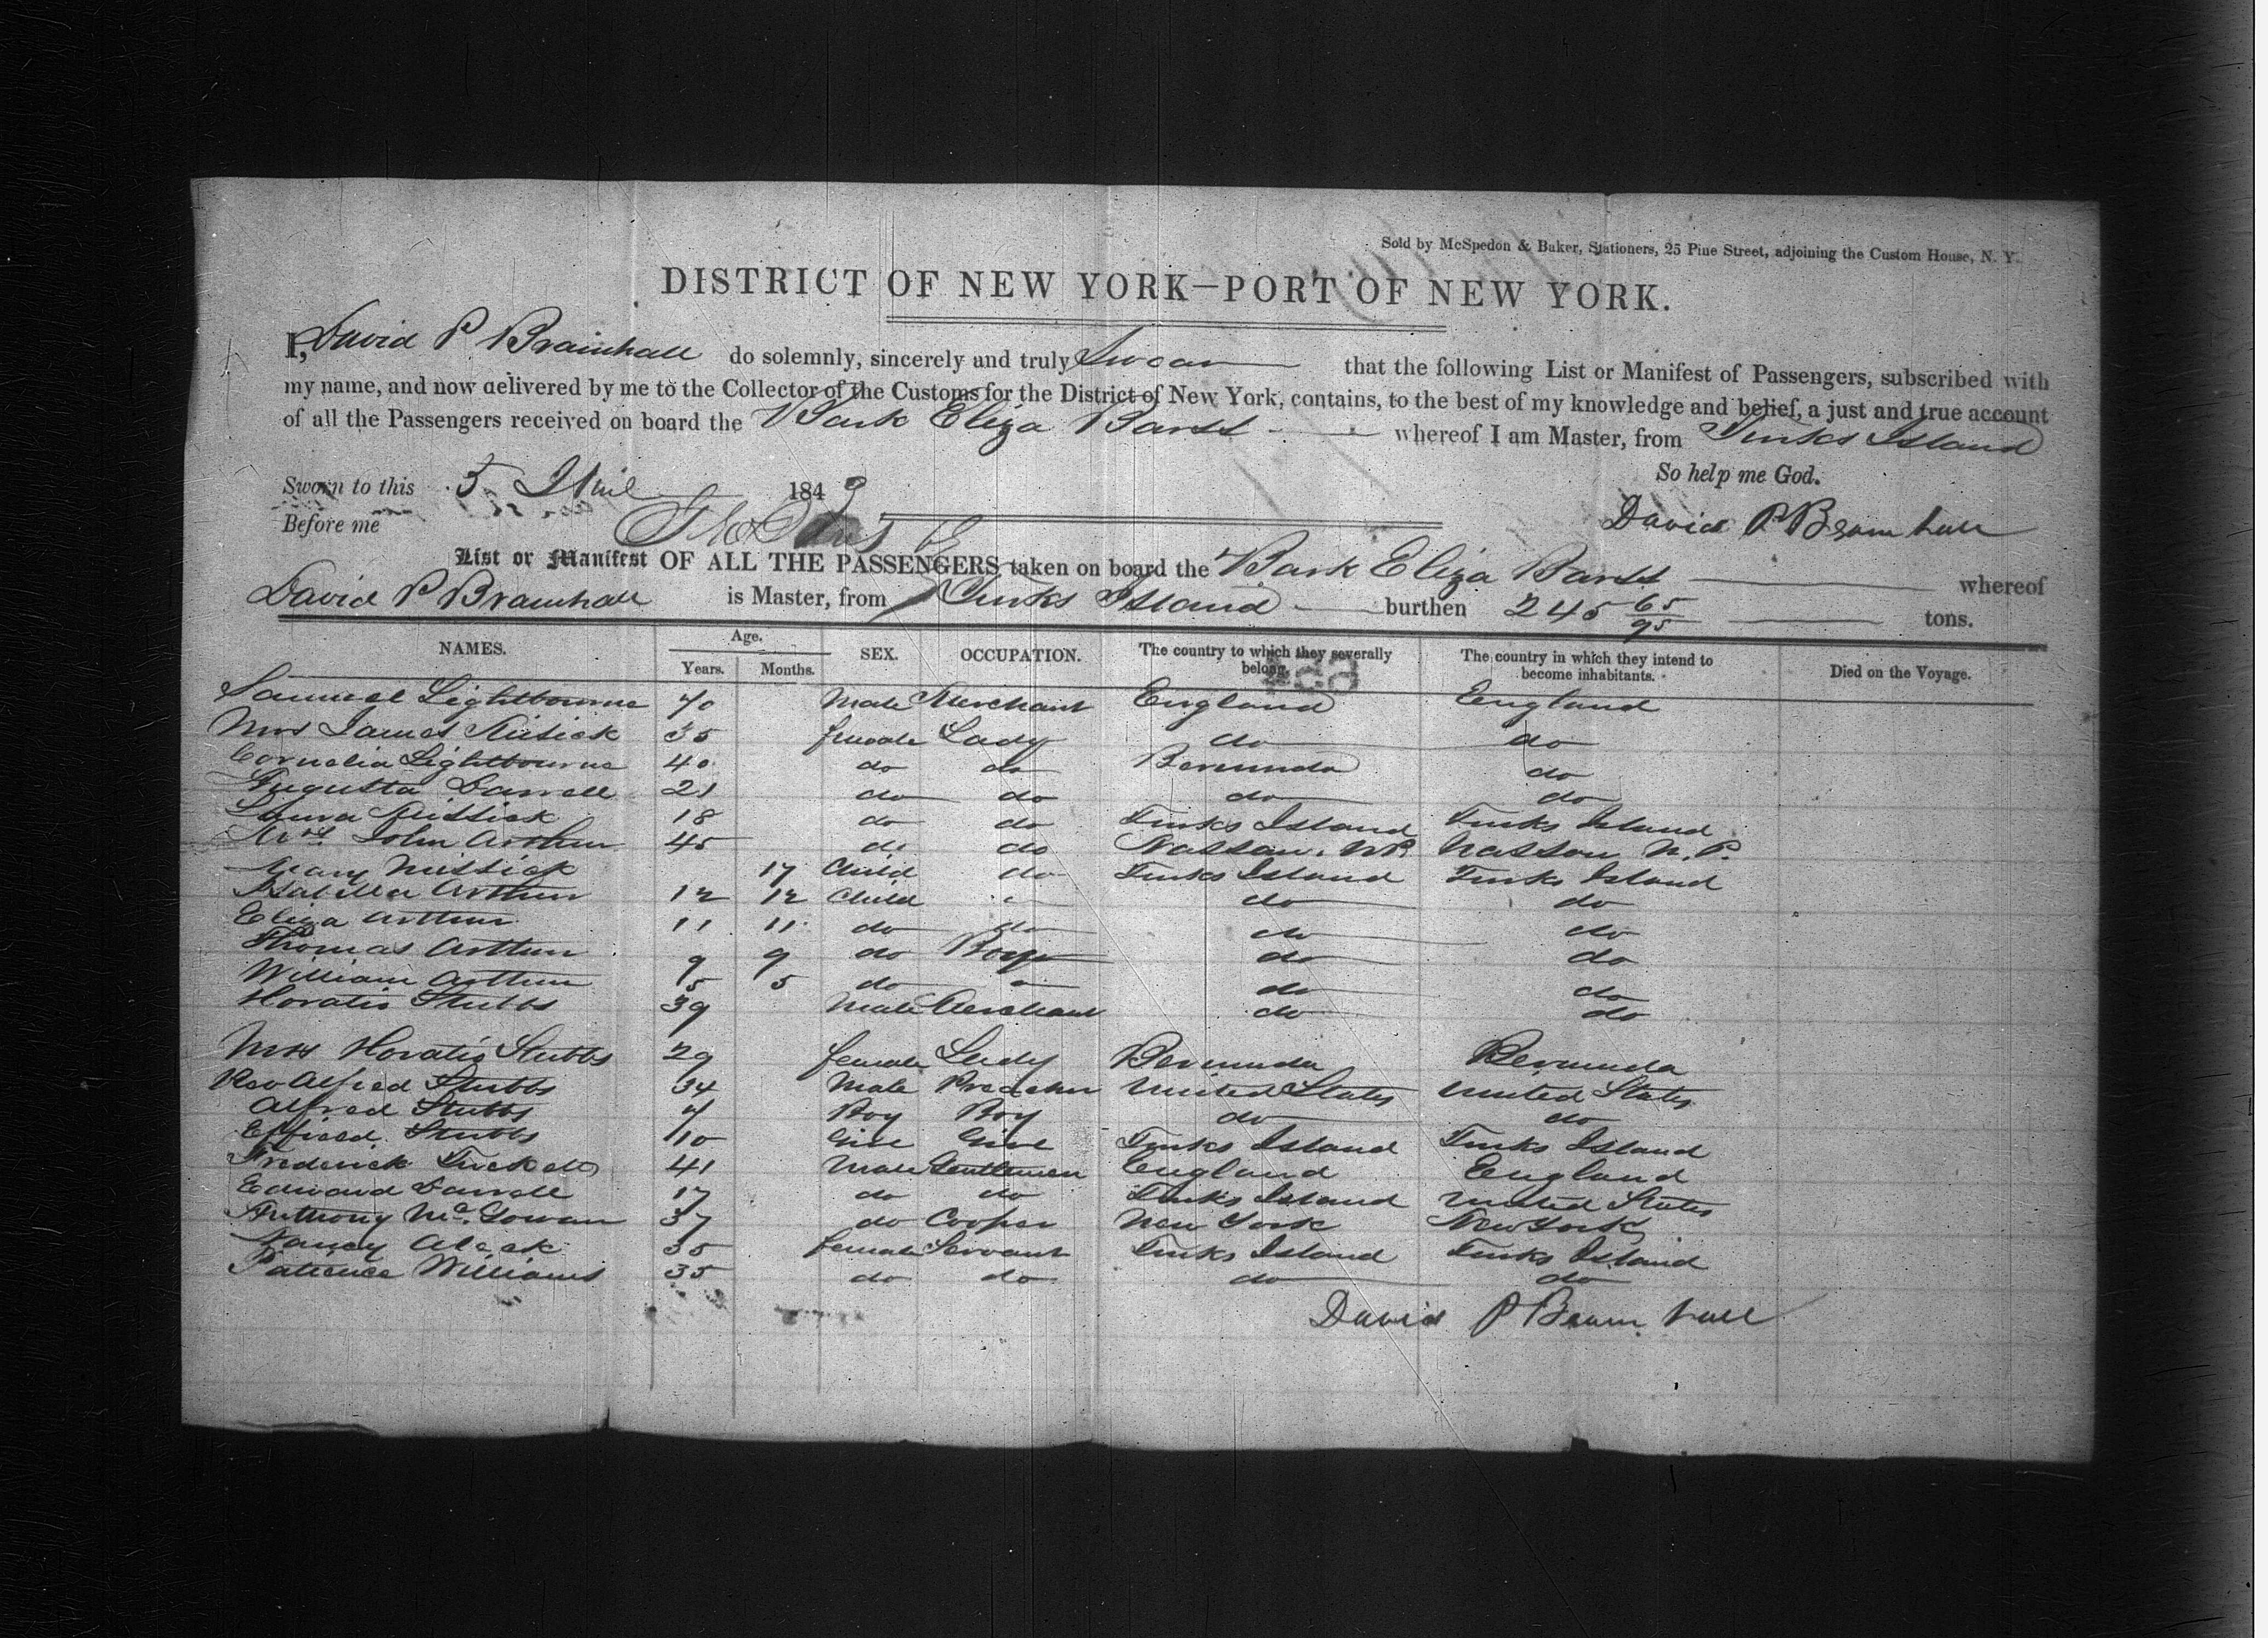 Sold by McSpedon & Baker, Stationers, 25 Pine Street, adjoining the Custom House, N. Y.
DISTRICT OF NEW YORK—PORT OF NEW YORK.
I, David P Bramhall do solemnly, sincerely and truly Swear that the following List or Manifest of Passengers, subscribed with
my name, and now delivered by me to the Collector of the Customs for the District of New York, contains, to the best of my knowledge and belief, a just and true account
of all the Passengers received on board the Bark Eliza Barss whereof I am Master, from Turks Island
So help me God.
Sworn to this 5 184
Before me
David P Bramhall
List or Manifest OF ALL THE PASSENGERS taken on board the Bark Eliza Barss whereof
David P Bramhall is Master, from Turks Island burthen 245 65/95 tons.
NAMES. Age. Years. Months. SEX. OCCUPATION. The country to which they severally belong. The country in which they intend to become inhabitants. Died on the Voyage.
Samuel Lightbourne 40 Male Merchant England England
Mrs James Misick 35 female Lady do do
Cornelia Lightbourne 40 do do Bermuda do
Augusta Darrell 21 do do do do
Laura Missick 18 do do Turks Island Turks Island
Mrs John Arthur 45 do do Nassau, N.P. Nassau N.P.
Mary Missick 17 Child do Turks Island Turks Island
Isabella Arthur 12 12 Child do do
Eliza Arthur 11 11 do do do do
Thomas Arthur 9 9 do Boys do do
William Arthur 5 5 do do do
Horatio Stubbs 39 Male Merchant do do
Mrs Horatio Stubbs 29 female Lady Bermuda Bermuda
Rev Alfred Stubbs 34 Male Preacher United States United States
Alfred Stubbs 4 Boy Boy do do
Stubbs 10 Girl Girl Turks Island Turks Island
Frederick 41 Male Gentleman England England
Edward Darrell 17 do do Turks Island United States
Anthony Mc Gowan 37 do Cooper New York New York
Nancy 35 female Servant Turks Island Turks Island
Patience Williams 35 do do do do
David P Bramhall